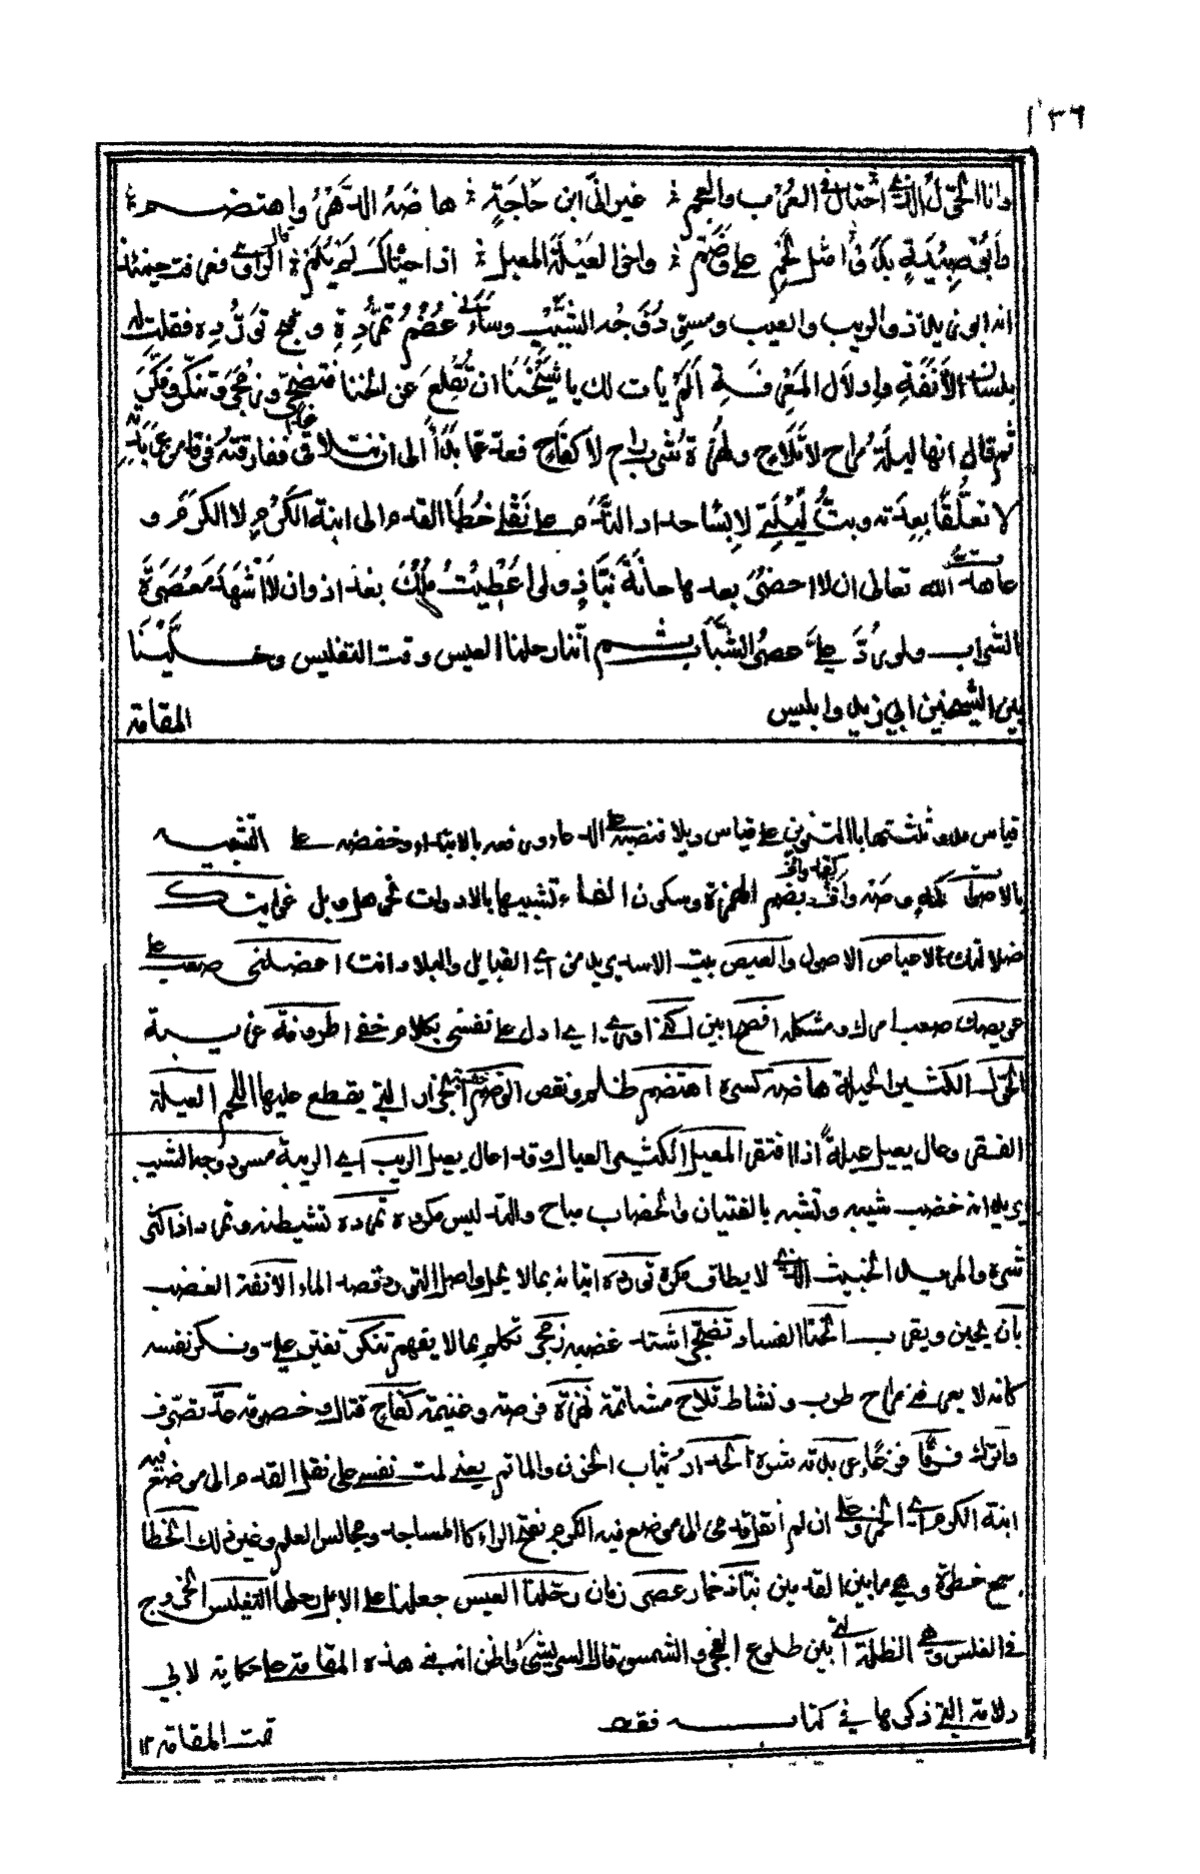 ١٣٦
وانا الحوّل الذي احتال في العرب والعجم غير انّي ابن حاجةٍ هاضه الدهر واهتضم
وابو صبيةٍ بدوا مثل لحمٍ على وضم واخو العيلة المعيل اذا احتال لم يلم قال الراوي فعرفت حينئذ
انه ابو زيد ذو الريب والعيب ومسوّد وجه الشيب وساءني عظم تمرّده وقبح تورّده فقلت له
بلسان الانفة وادلال المعرفة الم يأن لك يا شيخنا ان تقلع عن الخنا فتضجّر وزمجر وتنكّر وفكّر
ثم قال انها ليلة مراح لا تلاح ونهزة شرب راح لا كفاح فعدّ عمّا بدا الى ان نتلاقى غدا ففارقته فرقا من عربدته
لا تعلّقا بعدته وبتّ ليلتي لابسا حداد الندم على نقلي خطا القدم الى ابنة الكرم لا الكرم و
عاهدت الله تعالى ان لا احضر بعدها حانة نبّاذ ولو اعطيت ملك بغداذ وان لا اشهد معصرة
الشراب ولو ردّ عليّ عصر الشباب ثم اننا رحلنا العيس وقت التغليس وخلّينا
بين الشيخين ابي زيد وابليس المقامة
بالاصوات وافّ بضم الهمزة وسكون الفاء تشبيها بالادوات نحو هل وبل غوايتك
ضلالتك الاعياص الاصول والعيص بيت الاسد يريد من اي القبايل والبلاد انت اعضلني صعب علي
عويصك صعب امرك ومشكله افصح ابين اكنّي اورّي اي ادل على نفسي بكلام خفي اطروفة غريبة
الحوّل الكثير الحيلة هاضه كسره اهتضم ظلم ونقص الوضم خشبة الجزار التي يقطع عليها اللحم العيلة
الفقر وعال يعيل عيلةً اذا افتقر المعيل الكثير العيال وقد اعال يعيل الريب اي الريبة مسوّد وجه الشيب
يريد انه خضب شيبه وتشبه بالفتيان والخضاب مباح والتد ليس مكروه تمرده تشيطنه وتمرد اذا كثر
شره والمريد الخبيث الذي لا يطاق مكره تورده اتيانه بما لا يحل واصل التورد قصد الماء الانفة الغضب
بان يحين ويقرب الخنا الفساد تضجّر اشتد غضبه زمجر تكلم بما لا يفهم تنكر تغير عليّ ونكر نفسه
كانه لا يعرفني مراح طرب ونشاط تلاح مشاتمة نهزة فرصة وغنيمة كفاح قتال وخصومة عدّ تصرف
واترك فرقا فزعا عربدته شره الحداد ثياب الحزن والماتم يعني لمت نفسي على نقل القدم الى موضع فيه
ابنة الكرم اي الخمر وعلى ان لم انقل قدمي الى موضع فيه الكرم بفتح الراء كالمساجد ومجالس العلم وغير ذلك الخطا
جمع خطوة وهي ما بين القدمين نبّاذ خمار عصر زمان رحلنا العيس جعلنا على الابل رحلها التغليس الخروج
في الغلس وهي الظلمة التي بين طلوع الفجر والشمس قال الشريشي واظن انه في هذه المقامة حكاية لابي
دلامة التي ذكرها في كتاب فقه تمت المقامة ١٢